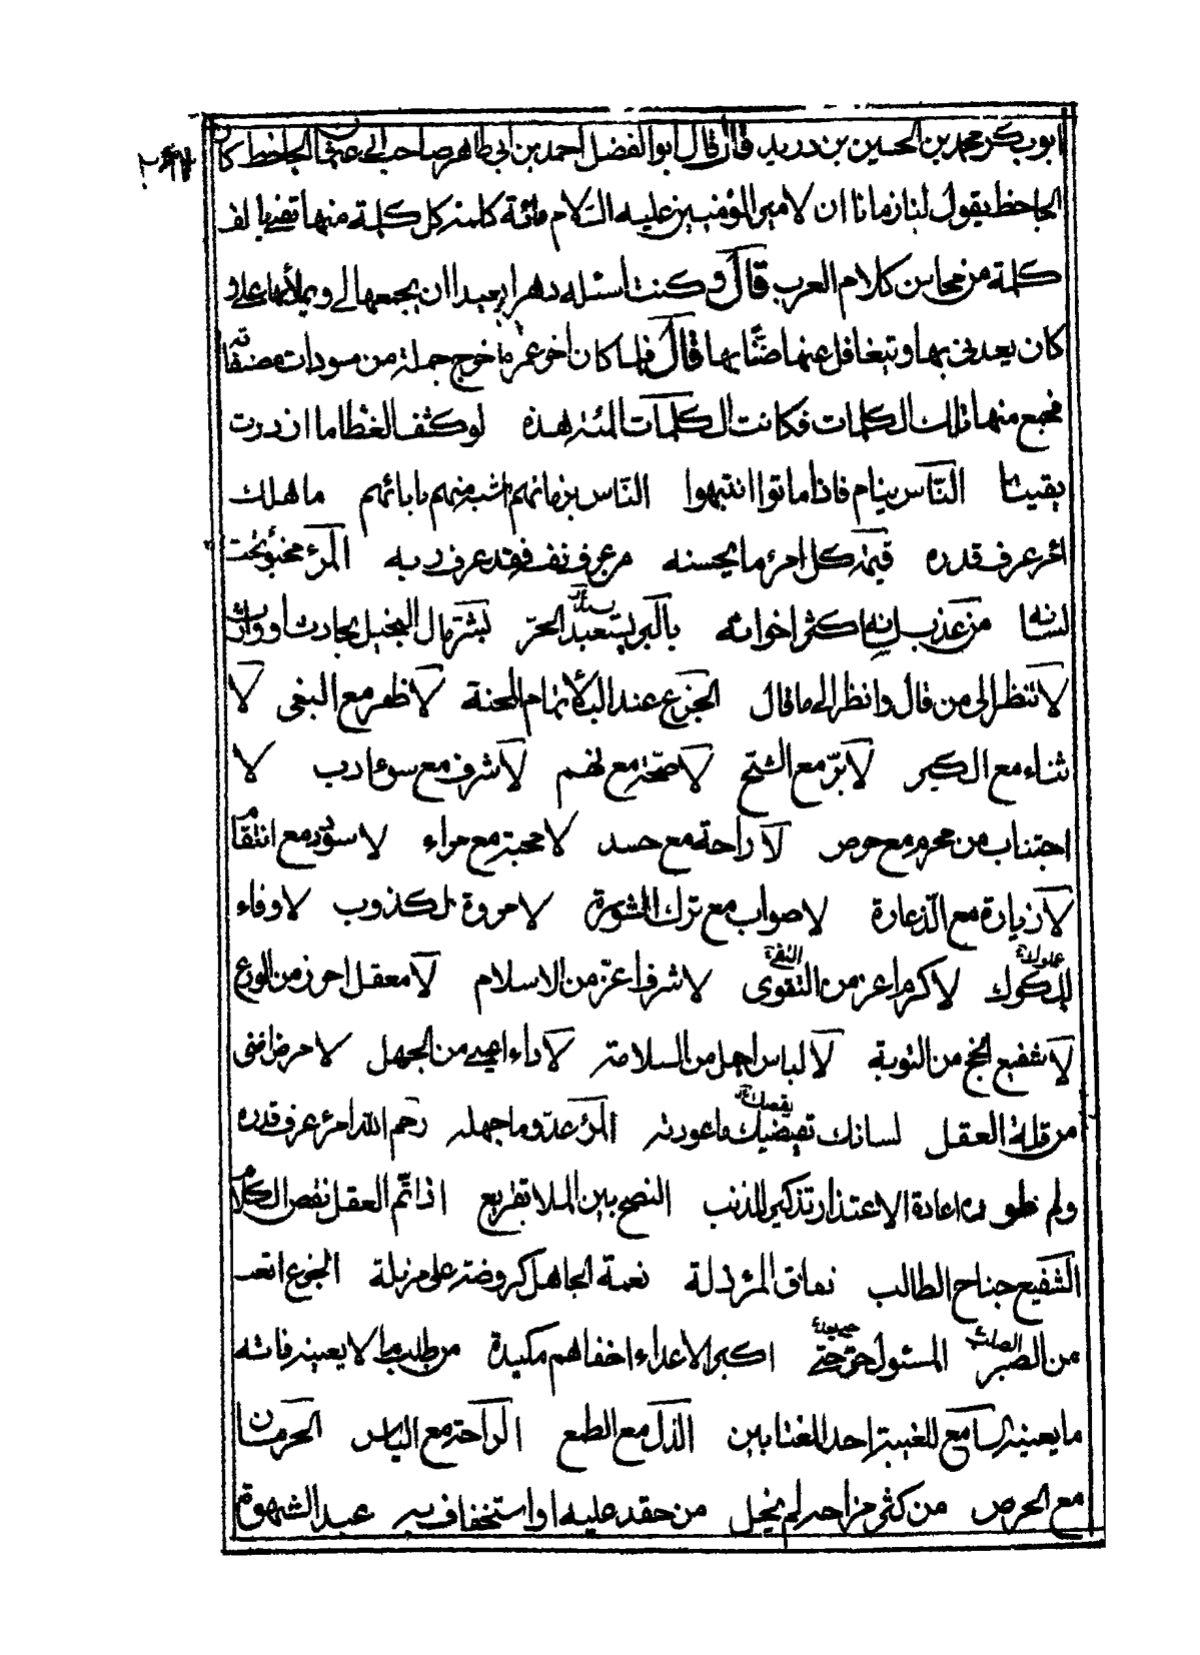 ابوبكر محمد بن الحسين بن دريد قال قال ابو الفضل احمد بن ابى طاهر صاحب ابى عثمان الجاحظ كان
الجاحظ يقول لنا زمانا ان لامير المؤمنين عليه السّلام مائة كلمة كل كلمة منها تفى بالف
كلمة من محاسن كلام العرب قال وكنت اسئله دهرا بعيدا ان يجمعها لى ويملأها على و
كان يعدنى بها ويتغافل عنها ضنّا بها قال فلما كان اخر عمره اخرج جملة من مسودات مصنفاته
فجمع منها تلك الكلمات فكانت الكلمات المئة هذه لو كشف الغطا ما ازددت
يقينا النّاس نيام فاذا ماتوا انتبهوا النّاس بزمانهم اشبه منهم بابائهم ما هلك
امرء عرف قدره قيمة كل امرئ ما يحسنه من عرف نفسه فقد عرف ربه المرؤ مخبوّ تحت
لسانه من عذب لسانه كثر اخوانه بالبر يستعبد الحرّ بشّر مال البخيل بحادث او وارث
لا تنظر الى من قال وانظر الى ما قال الجزع عند البلأ تمام المحنة لا ظفر مع البغى لا
ثناء مع الكبر لا برّ مع الشحّ لا صحّة مع نهم لا شرف مع سوء ادب لا
اجتناب من محرم مع حرص لا راحة مع حسد لا محبة مع مراء لا سؤدد مع انتقام
لا زيارة مع الذّعارة لا صواب مع ترك المشورة لا مروة لكذوب لا وفاء
لملوك لا كرم اعز من التقوى التقى لا شرف اعزّ من الاسلام لا معقل احرز من الورع
لا شفيع انجح من التوبة لا لباس اجمل من السلامة لا داء اعيى من الجهل لا مرض اضنى
من قلة العقل لسانك يقتضيك ما عودته المرؤ عدو ما جهله رحم الله امرء عرف قدره
ولم اعادة الاعتذار تذكير للذنب النصح بين الملا تقريع اذا تمّ العقل نقص الكلام
الشّفيع جناح الطالب نفاق المرء ذلة نعمة الجاهل كروضة على مزبلة الجزع اتعب
من الصبر المسئول حرّ حتى يعد اكبر الاعداء اخفاهم مكيدة من طلب ما لا يعنيه فاته
ما يعنيه السامع للغيبة احد المغتابين الذّل مع الطمع الراحة مع الياس الحرمان
مع الحرص من كثر مزاحه لم يخل من حقد عليه او استخفاف به عبد الشهوة